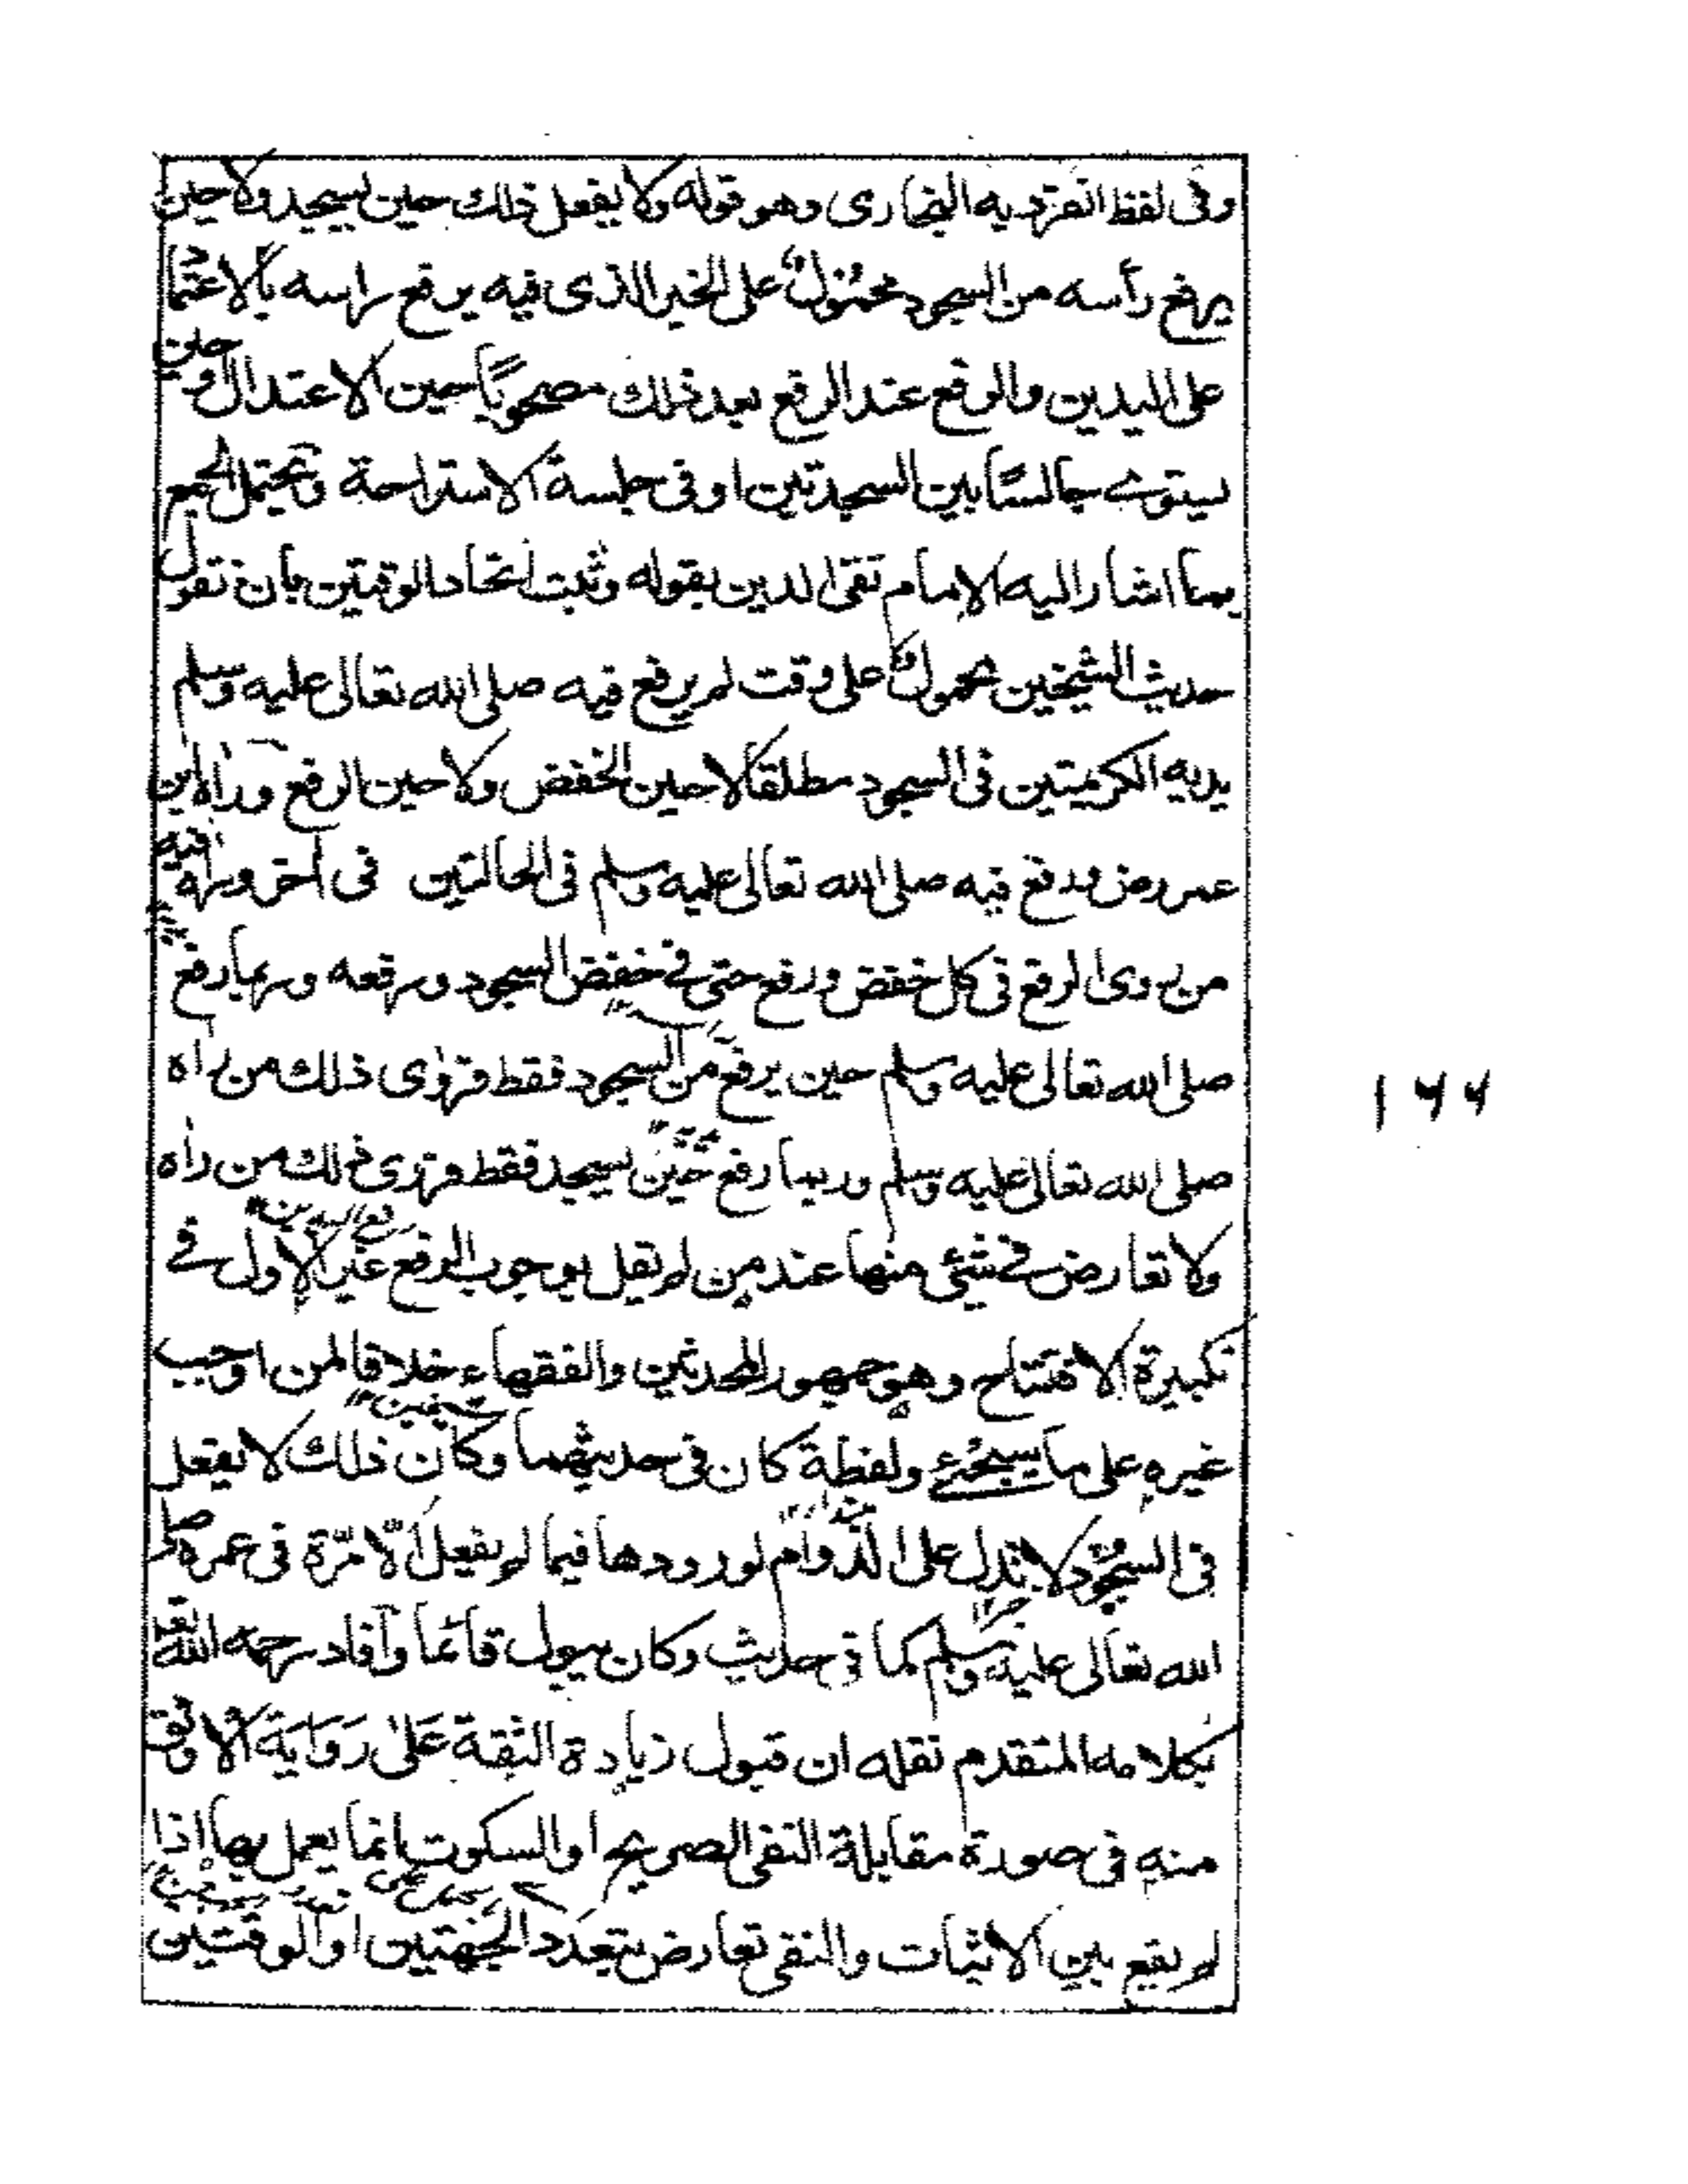 وفى لفظ انفرد به البخارى وهو قوله ولا يفعل ذلك حين يسجد ولا حين
يرفع رأسه من السجود محمول على الخبر الذى فيه يرفع راسه بالاعتماد
على اليدين والرفع عند الرفع بعد ذلك مصحوباً حين الاعتدال او حين
يستوى جالساً بين السجدتين او فى جلسة الاستراحة ويحتمل الجمع
بما اشار اليه الامام تقى الدين بقوله وثبت اتحاد الوقتين بان نقول
حديث الشيخين محمول على وقت لم يرفع فيه صلى الله تعالى عليه وسلم
يديه الكريمتين فى السجود مطلقا لا حين الخفض ولا حين الرفع وراه ابن
عمر رض ورفع فيه صلى الله تعالى عليه وسلم فى الحالتين فى آخر وراه فيه
من روى الرفع فى كل خفض ورفع حتى فى خفض السجود ورفعه وربما رفع
صلى الله تعالى عليه وسلم حين يرفع من السجود فقط فروى ذلك من راه
صلى الله تعالى عليه وسلم وربما رفع حين يسجد فقط فروى ذلك من راه
رفع اليدين
ولا تعارض فى شئ منها عند من لم يقل بوجوب الرفع غير الاول فى
تكبيرة الافتتاح وهو جمهور المحدثين والفقهاء خلافا لمن اوجب
شيخين
غيره على ما سيجئ ولفظة كان فى حديثهما وكان ذلك لا يفعل
فى السجود لا تدل على الدوام لورودها فيما لم يفعل الا مرّة فى عمره صلى
الله تعالى عليه وسلم كما فى حديث وكان يبول قائما وآفاد رحمه الله تعا
بكلامه المتقدم نقله ان قبول زيادة الثقة على رواية الاوثق
منه فى صورة مقابلة النفى الصريح او السكوت انما يعمل بها اذا
لم يقع بين الاثبات والنفى تعارض بتعدد الجهتين او الوقتين
۱۶۶